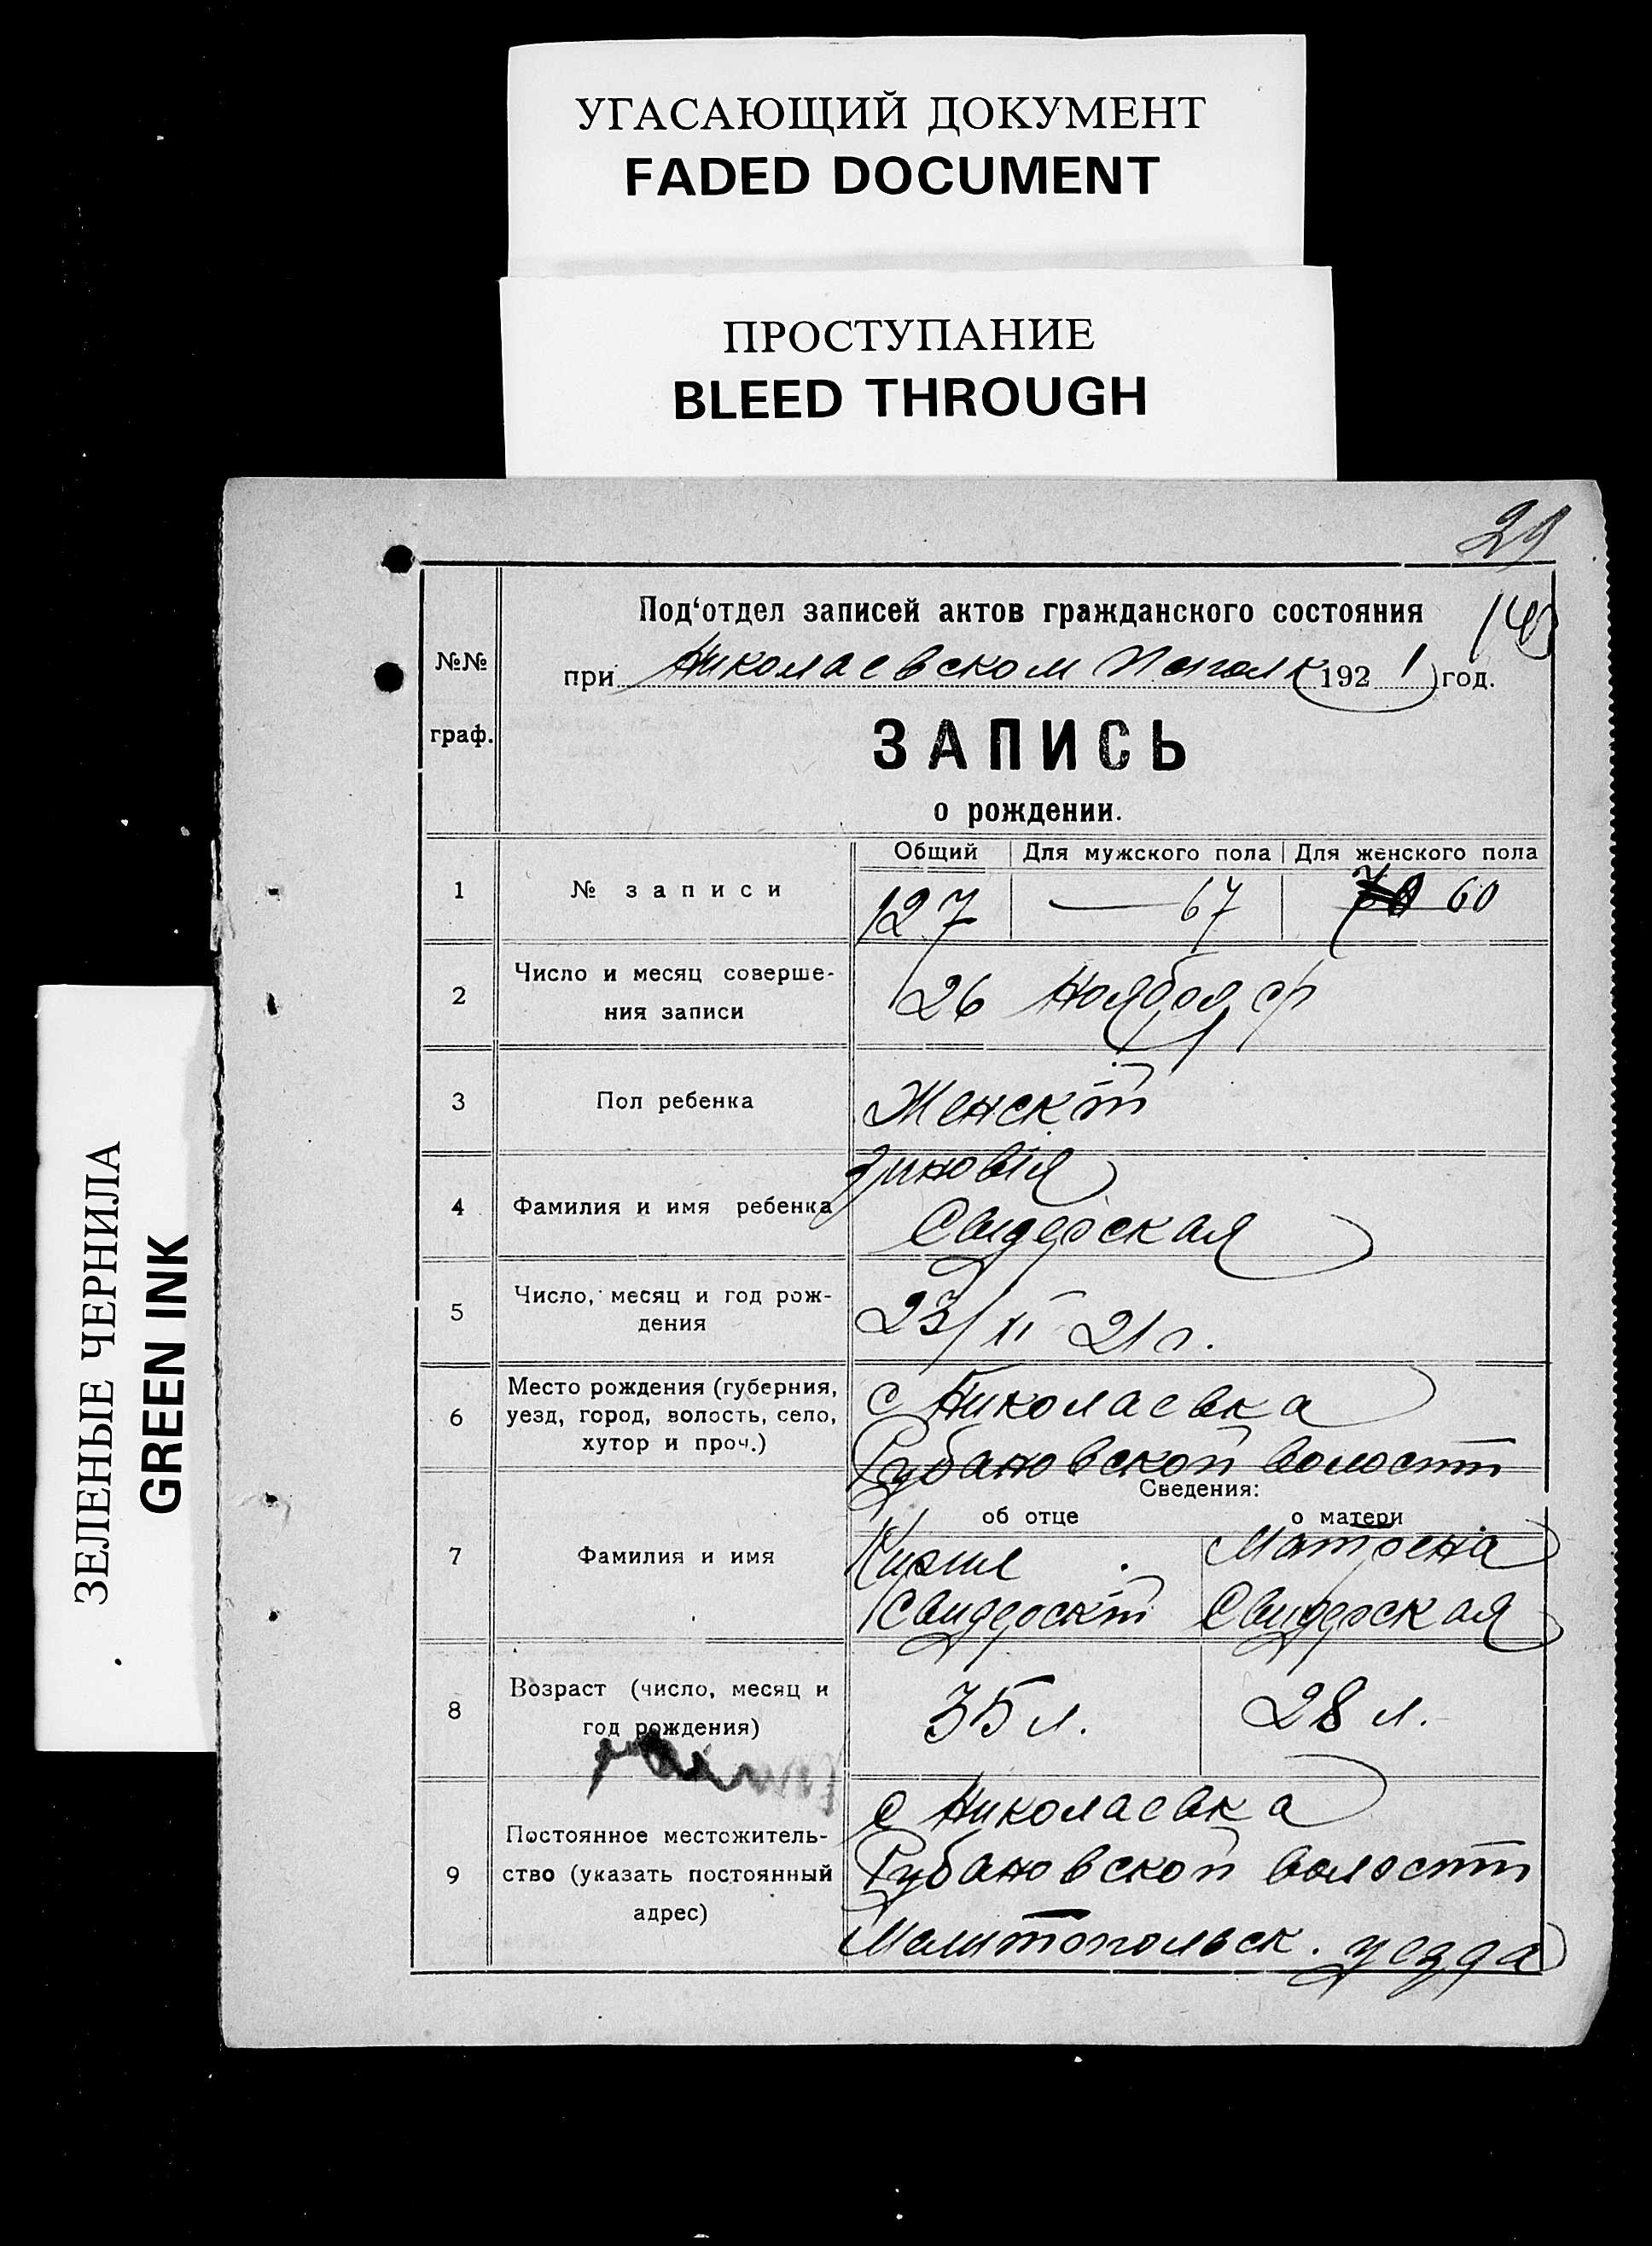 УГАСАЮЩИЙ ДОКУМЕНТ
FADED DOCUMENT
ПРОСТУПАНИЕ
BLEED THROUGH
ЗЕЛЕНЫЕ ЧЕРНИЛА
GREEN INK
29
Под‘отдел записей актов гражданского состояния
при Николаевском Исполк 1921 год.
№№ граф.
ЗАПИСЬ
о рождении.
Общий Для мужского пола Для женского пола
1 № записи 127 — 67 60
2 Число и месяц соверше-
ния записи 26 Ноября с/г
3 Пол ребенка Женскій
4 Фамилия и имя ребенка Зиновія
Свидерская
5 Число, месяц и год рож-
дения 23/XI 21 г.
6 Место рождения (губерния,
уезд, город, волость, село,
хутор и проч.)
с Николаевка
Рубановской волости
Сведения:
об отце о матери
7 Фамилия и имя Кирил Матрена
Свидерскій Свидерская
8 Возраст (число, месяц и
год рождения) 35 л. 28 л.
9 Постоянное местожитель-
ство (указать постоянный
адрес)
с Николаевка
Рубановской волости
Мелитопольск. уезда